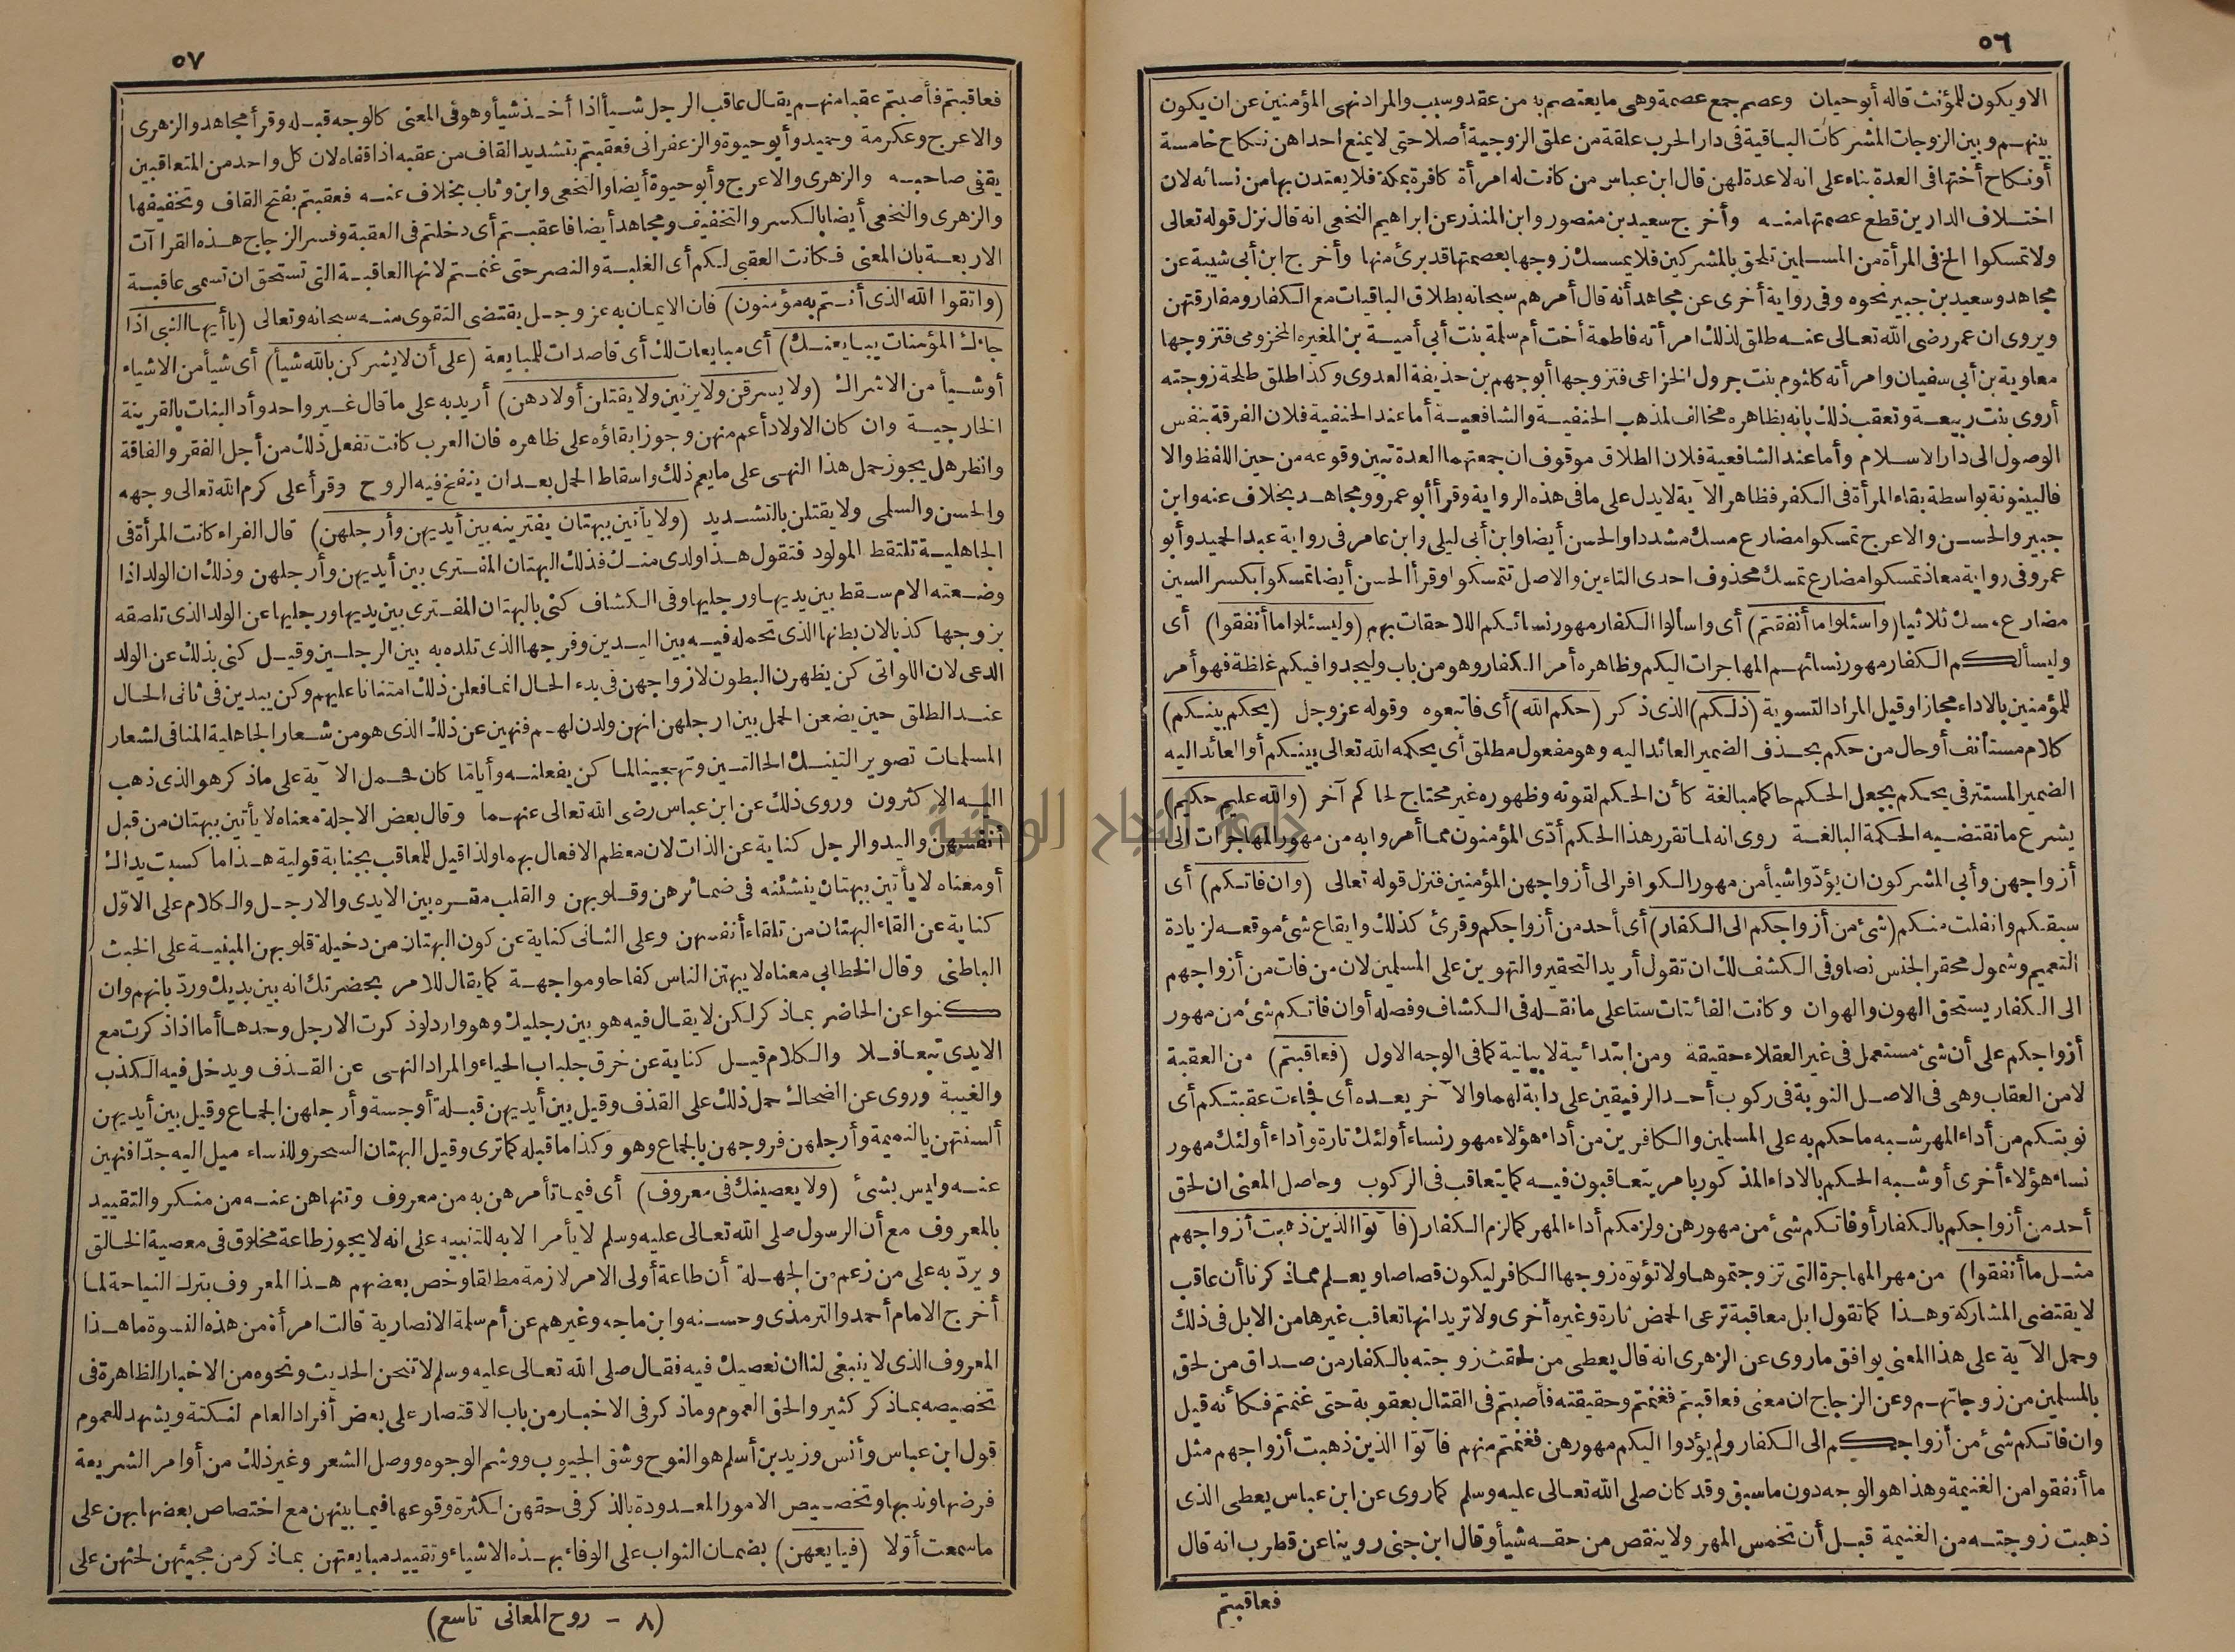 ٥٦
الا ويكون للمؤنث قاله أبوحيان وعصم جمع عصمة وهى ما يعتصم به من عقد وسبب والمراد نهى المؤمنين عن ان يكون
بينهم وبين الزوجات المشركات الباقية فى دار الحرب علقة من علق الزوجية أصلا حتى لا يمنع احداهن نكاح خامسة
أو نكاح أختها فى العدة بناء على انه لا عدة لهن قال ابن عباس من كانت له امرأة كافرة بمكة فلا يعتدن بها من نسائه لان
اختلاف الدارين قطع عصمتها منه وأخرج سعيد بن منصور وابن المنذر عن ابراهيم النخعى انه قال نزل قوله تعالى
ولا تمسكوا الخ فى المرأة من المسلمين تلحق بالمشركين فلا يمسك زوجها بعصمتها قد برئ منها وأخرج ابن أبى شيبة عن
مجاهد وسعيد بن جبير نحوه وفى رواية أخرى عن مجاهد أنه قال أمرهم سبحانه بطلاق الباقيات مع الكفار ومفارقتهن
ويروى ان عمر رضى الله تعالى عنه طلق لذلك امرأته فاطمة أخت أم سلمة بنت أبى أمية بن المغيره المخزومى فتزوجها
معاوية بن أبى سفيان وامرأته كلثوم بنت جرول الخزاعى فتزوجها أبو جهم بن حذيفة العدوى وكذا طلق طلحة زوجته
أروى بنت ربيعة وتعقب ذلك بانه بظاهره مخالف لمذهب الحنفية والشافعية أما عند الحنفية فلان الفرقة بنفس
الوصول الى دار الاسلام وأما عند الشافعية فلان الطلاق موقوف ان جمعتهما العدة تبين وقوعه من حين اللفظ والا
فالبينونة بواسطة بقاء المرأة فى الكفر فظاهر الآية لا يدل على ما فى هذه الرواية وقرأ أبو عمرو ومجاهد بخلاف عنه وابن
جبير والحسن والاعرج تمسكوا مضارع مسك مشددا والحسن أيضا وابن أبى ليلى وابن عامر فى رواية عبد الحميد وأبو
عمرو فى رواية معاذ تمسكوا مضارع تمسك محذوف احدى التاءين والاصل تتمسكوا وقرأ الحسن أيضا تمسكوا بكسر السين
مضارع مسك ثلاثيا (واسئلوا ما أنفقتم) أى واسألوا الكفار مهور نسائكم اللاحقات بهم (وليسئلوا ما أنفقوا) أى
وليسألكم الكفار مهور نسائهم المهاجرات اليكم وظاهره أمر الكفار وهو من باب وليجدوا فيكم غلظة فهو أمر
للمؤمنين بالاداء مجازا وقيل المراد التسوية (ذلكم) الذى ذكر (حكم الله) أى فاتبعوه وقوله عزوجل (يحكم بينكم)
كلام مستأنف أو حال من حكم بحذف الضمير العائد اليه وهو مفعول مطلق أى يحكمه الله تعالى بينكم أو العائد اليه
الضمير المستتر فى يحكم بجعل الحكم حاكما مبالغة كأن الحكم لقوته وظهوره غير محتاج لحاكم آخر (والله عليم حكيم)
يشرع ما تقتضيه الحكمة البالغة روى انه لما تقرر هذا الحكم أدّى المؤمنون مما أمروا به من مهور المهاجرات الى
أزواجهن وأبى المشركون ان يؤدّوا شيأ من مهور الكوافر الى أزواجهن المؤمنين فنزل قوله تعالى (وان فاتكم) أى
سبقكم وانفلت منكم (شئ من أزواجكم الى الكفار) أى أحد من أزواجكم وقرئ كذلك وايقاع شئ موقعه لزيادة
التعميم وشمول محقر الجنس نصا وفى الكشف لك ان تقول أريد التحقير والتهوين على المسلمين لان من فات من أزواجهم
الى الكفار يستحق الهون والهوان وكانت الفائتات ستا على ما نقله فى الكشاف وفصله أو ان فاتكم شئ من مهور
أزواجكم على أن شئ مستعمل فى غير العقلاء حقيقة ومن ابتدائية لا بيانية كما فى الوجه الاول (فعاقبتم) من العقبة
لا من العقاب وهى فى الاصل النوبة فى ركوب أحد الرفيقين على دابة لهما والآخر بعده أى فجاءت عقبتكم أى
نوبتكم من أداء المهر شبه ما حكم به على المسلمين والكافرين من أداء هؤلاء مهور نساء أولئك تارة وأداء أولئك مهور
نساء هؤلاء أخرى أو شبه الحكم بالاداء المذكور بامر يتعاقبون فيه كما يتعاقب فى الركوب وحاصل المعنى ان لحق
أحد من أزواجكم بالكفار أو فاتكم شئ من مهورهن ولزمكم أداء المهر كما لزم الكفار (فآتوا الذين ذهبت أزواجهم
مثل ما أنفقوا) من مهر المهاجرة التى تزوجتموها ولا تؤتوه زوجها الكافر ليكون قصاصا ويعلم مما ذكرنا أن عاقب
لا يقتضى المشاركة وهذا كما تقول ابل معاقبة ترعى الحمض تارة وغيره أخرى ولا تريد انها تعاقب غيرها من الابل فى ذلك
وحمل الآية على هذا المعنى يوافق ما روى عن الزهرى انه قال يعطى من لحقت زوجته بالكفار من صداق من لحق
بالمسلمين من زوجاتهم وعن الزجاج ان معنى فعاقبتم فغنمتم وحقيقته فأصبتم فى القتال بعقوبة حتى غنمتم فكأنه قيل
وان فاتكم شئ من أزواجكم الى الكفار ولم يؤدوا اليكم مهورهن فغنمتم منهم فآتوا الذين ذهبت أزواجهم مثل
ما أنفقوا من الغنيمة وهذا هو الوجه دون ما سبق وقد كان صلى الله تعالى عليه وسلم كما روى عن ابن عباس يعطى الذى
ذهبت زوجته من الغنيمة قبل أن تخمس المهر ولا ينقص من حقه شيأ وقال ابن جنى روينا عن قطرب انه قال
فعاقبتم
٥٧
فعاقبتم فأصبتم عقبا منهم يقال عاقب الرجل شيأ اذا أخذ شيأ وهو فى المعنى كالوجه قبله وقرأ مجاهد والزهرى
والاعرج وعكرمة وحميد وأبو حيوة والزعفرانى فعقبتم بتشديد القاف من عقبه اذا قفاه لان كل واحد من المتعاقبين
يقفى صاحبه والزهرى والاعرج وأبو حيوة أيضا والنخعى وابن وثاب بخلاف عنه فعقبتم بفتح القاف وتخفيفها
والزهرى والنخعى أيضا بالكسر والتخفيف ومجاهد أيضا فاعقبتم أى دخلتم فى العقبة وفسر الزجاج هذه القراآت
الاربعة بان المعنى فكانت العقبى لكم أى الغلبة والنصر حتى غنمتم لانها العاقبة التى تستحق ان تسمى عاقبة
(واتقوا الله الذى أنتم به مؤمنون) فان الايمان به عزوجل يقتضى التقوى منه سبحانه وتعالى (يا أيها النبى اذا
جاءك المؤمنات يبايعنك) أى مبايعات لك أى قاصدات للمبايعة (على أن لا يشركن بالله شيأ) أى شيأ من الاشياء
أو شيأ من الاشراك (ولا يسرقن ولا يزنين ولا يقتلن أولادهن) أريد به على ما قال غير واحد وأد البنات بالقرينة
الخارجية وان كان الاولاد أعم منهن وجوز ابقاؤه على ظاهره فان العرب كانت تفعل ذلك من أجل الفقر والفاقة
وانظر هل يجوز حمل هذا النهى على ما يعم ذلك واسقاط الحمل بعد ان ينفخ فيه الروح وقرأ على كرم الله تعالى وجهه
والحسن والسلمى ولا يقتلن بالتشديد (ولا يأتين ببهتان يفترينه بين أيديهن وأرجلهن) قال الفراء كانت المرأة فى
الجاهلية تلتقط المولود فتقول هذا ولدى منك فذلك البهتان المفترى بين أيديهن وأرجلهن وذلك ان الولد اذا
وضعته الام سقط بين يديها ورجليها وفى الكشاف كنى بالبهتان المفترى بين يديها ورجليها عن الولد الذى تلصقه
بزوجها كذبا لان بطنها الذى تحمله فيه بين اليدين وفرجها الذى تلده به بين الرجلين وقيل كنى بذلك عن الولد
الدعى لان اللواتى كن يظهرن البطون لازواجهن فى بدء الحال انما فعلن ذلك امتنانا عليهم وكن يبدين فى ثانى الحال
عند الطلق حين يضعن الحمل بين ارجلهن انهن ولدن لهم فنهين عن ذلك الذى هو من شعار الجاهلية المنافى لشعار
المسلمات تصويرا لتينك الحالتين وتهجينا لما كن يفعلنه وأيا ما كان فحمل الآية على ما ذكر هو الذى ذهب
اليه الاكثرون وروى ذلك عن ابن عباس رضى الله تعالى عنهما وقال بعض الاجلة معناه لا يأتين ببهتان من قبل
أنفسهن واليد والرجل كناية عن الذات لان معظم الافعال بهما ولذا قيل للمعاقب بجناية قولية هذا ما كسبت يداك
أو معناه لا يأتين ببهتان ينشئنه فى ضمائرهن وقلوبهن والقلب مقره بين الايدى والارجل والكلام على الاوّل
كناية عن القاء البهتان من تلقاء أنفسهن وعلى الثانى كناية عن كون البهتان من دخيلة قلوبهن المبنية على الخبث
الباطنى وقال الخطابى معناه لا يبهتن الناس كفاحا ومواجهة كما يقال للامر بحضرتك انه بين يديك وردّ بانهم وان
كنوا عن الحاضر بما ذكر لكن لا يقال فيه هو بين رجليك وهو وارد لو ذكرت الارجل وحدها أما اذا ذكرت مع
الايدى تبعا فلا والكلام قيل كناية عن خرق جلباب الحياء والمراد النهى عن القذف ويدخل فيه الكذب
والغيبة وروى عن الضحاك حمل ذلك على القذف وقيل بين أيديهن قبلة أو جسة وأرجلهن الجماع وقيل بين أيديهن
ألسنتهن بالنميمة وأرجلهن فروجهن بالجماع وهو وكذا ما قبله كما ترى وقيل البهتان السحر وللنساء ميل اليه جدّا فنهين
عنه وليس بشئ (ولا يعصينك فى معروف) أى فيما تأمرهن به من معروف وتنهاهن عنه من منكر والتقييد
بالمعروف مع أن الرسول صلى الله تعالى عليه وسلم لا يأمر الا به للتنبيه على انه لا يجوز طاعة مخلوق فى معصية الخالق
ويردّ به على من زعم من الجهلة أن طاعة أولى الامر لازمة مطلقا وخص بعضهم هذا المعروف بترك النياحة لما
أخرج الامام أحمد والترمذى وحسنه وابن ماجه وغيرهم عن أم سلمة الانصارية قالت امرأة من هذه النسوة ما هذا
المعروف الذى لا ينبغى لنا ان نعصيك فيه فقال صلى الله تعالى عليه وسلم لا تنحن الحديث ونحوه من الاخبار الظاهرة فى
تخصيصه بما ذكر كثير والحق العموم وما ذكر فى الاخبار من باب الاقتصار على بعض أفراد العام لنكتة ويشهد للعموم
قول ابن عباس وأنس وزيد بن أسلم هو النوح وشق الجيوب ووشم الوجوه ووصل الشعر وغير ذلك من أوامر الشريعة
فرضها وندبها وتخصيص الامور المعدودة بالذكر فى حقهن لكثرة وقوعها فيما بينهن مع اختصاص بعضها بهن على
ما سمعت أوّلا (فبايعهن) بضمان الثواب على الوفاء بهذه الاشياء وتقييد مبايعتهن بما ذكر من مجيئهن لحثهن على
(٨ – روح المعانى تاسع)
جامعة النجاح الوطنية